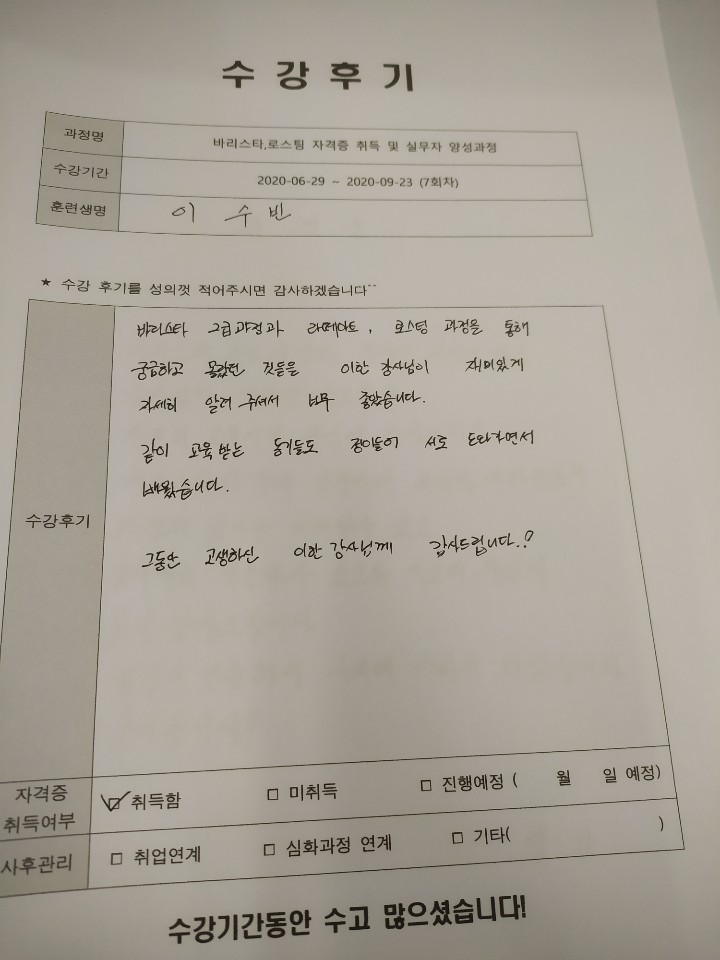 수강후기
과정명 바리스타,로스팅 자격증 취득 및 실무자 양성과정
수강기간 2020-06-29 ~ 2020-09-23 (7회차)
훈련생명 이 수 빈
★ 수강 후기를 성의껏 적어주시면 감사하겠습니다^^
수강후기
바리스타 2급과정과 라떼아트, 로스팅 과정을 통해
궁금하고 몰랐던 것들을 이한 강사님이 재미있게
자세히 알려 주셔서 너무 좋았습니다.
같이 교육받는 동기들도 정이들어 서로 도와가면서
배웠습니다.
그동안 고생하신 이한 강사님께 감사드립니다.!
자격증 취득여부 ☑ 취득함 □ 미취득 □ 진행예정 ( 월 일 예정)
사후관리 □ 취업연계 □ 심화과정 연계 □ 기타( )
수강기간동안 수고 많으셨습니다!